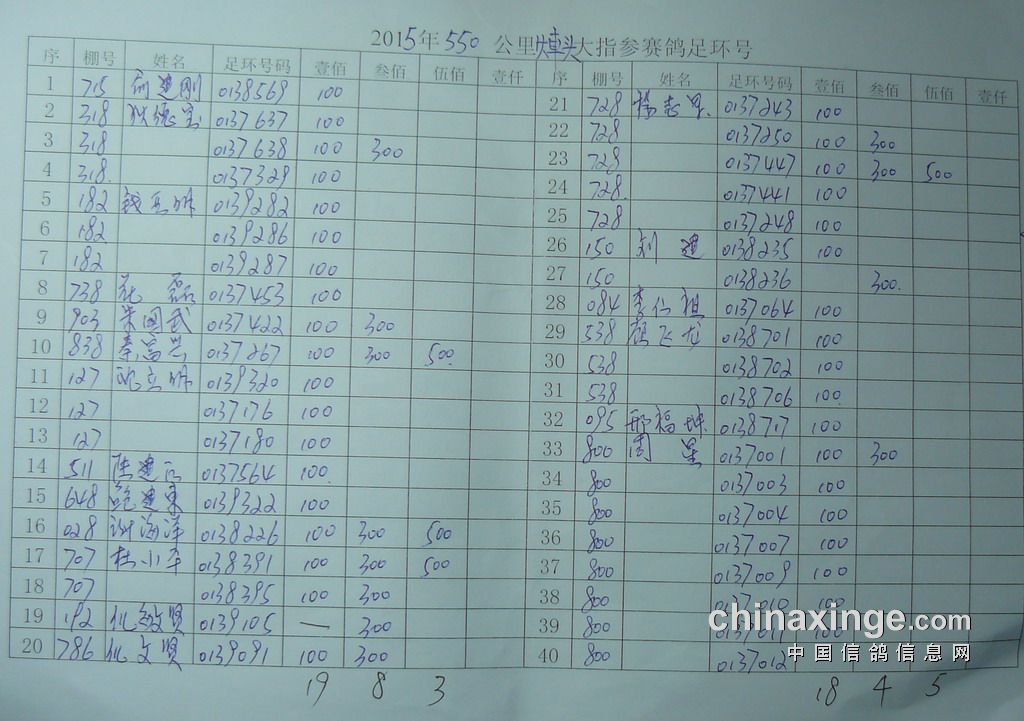 2015年550公里 大指参赛鸽足环号
序 棚号 姓名 足环号码 壹佰 叁佰 伍佰 壹仟
1 715 俞建刚 0138569 100
2 318 狄德宝 0137637 100
3 318 0137638 100 300
4 318 0137329 100
5 182 0139282 100
6 182 0139286 100
7 182 0139287 100
8 738 磊 0137453 100
9 903 宋国武 0137422 100 300
10 838 0137267 100 300 500
11 127 0139320 100
12 127 0137176 100
13 127 0137180 100
14 511 陆建 0137564 100
15 648 鲍建东 0139322 100
16 028 谢海洋 0138226 100 300 500
17 707 杜小平 0138391 100 300 500
18 707 0138395 100 300
19 192 仇敏贤 0139105 — 300
20 786 仇文贤 0139091 100 300
19 8 3
序 棚号 姓名 足环号码 壹佰 叁佰 伍佰 壹仟
21 728 杨志 0137243 100
22 728 0137250 100 300
23 728 0137447 100 300 500
24 728 0137441 100
25 728 0137248 100
26 150 刘建 0138235 100
27 150 0138236 300
28 084 李仁祖 0137064 100
29 538 顾飞龙 0138701 100
30 538 0138702 100
31 538 0138706 100
32 095 邢福坤 0138717 100
33 800 周星 0137001 100 300
34 800 0137003 100
35 800 0137004 100
36 800 0137007 100
37 800 0137009 100
38 800 0137010 100
39 800 0137011 100
40 800 0137012
18 4 5
chinaxinge.com
中国信鸽信息网